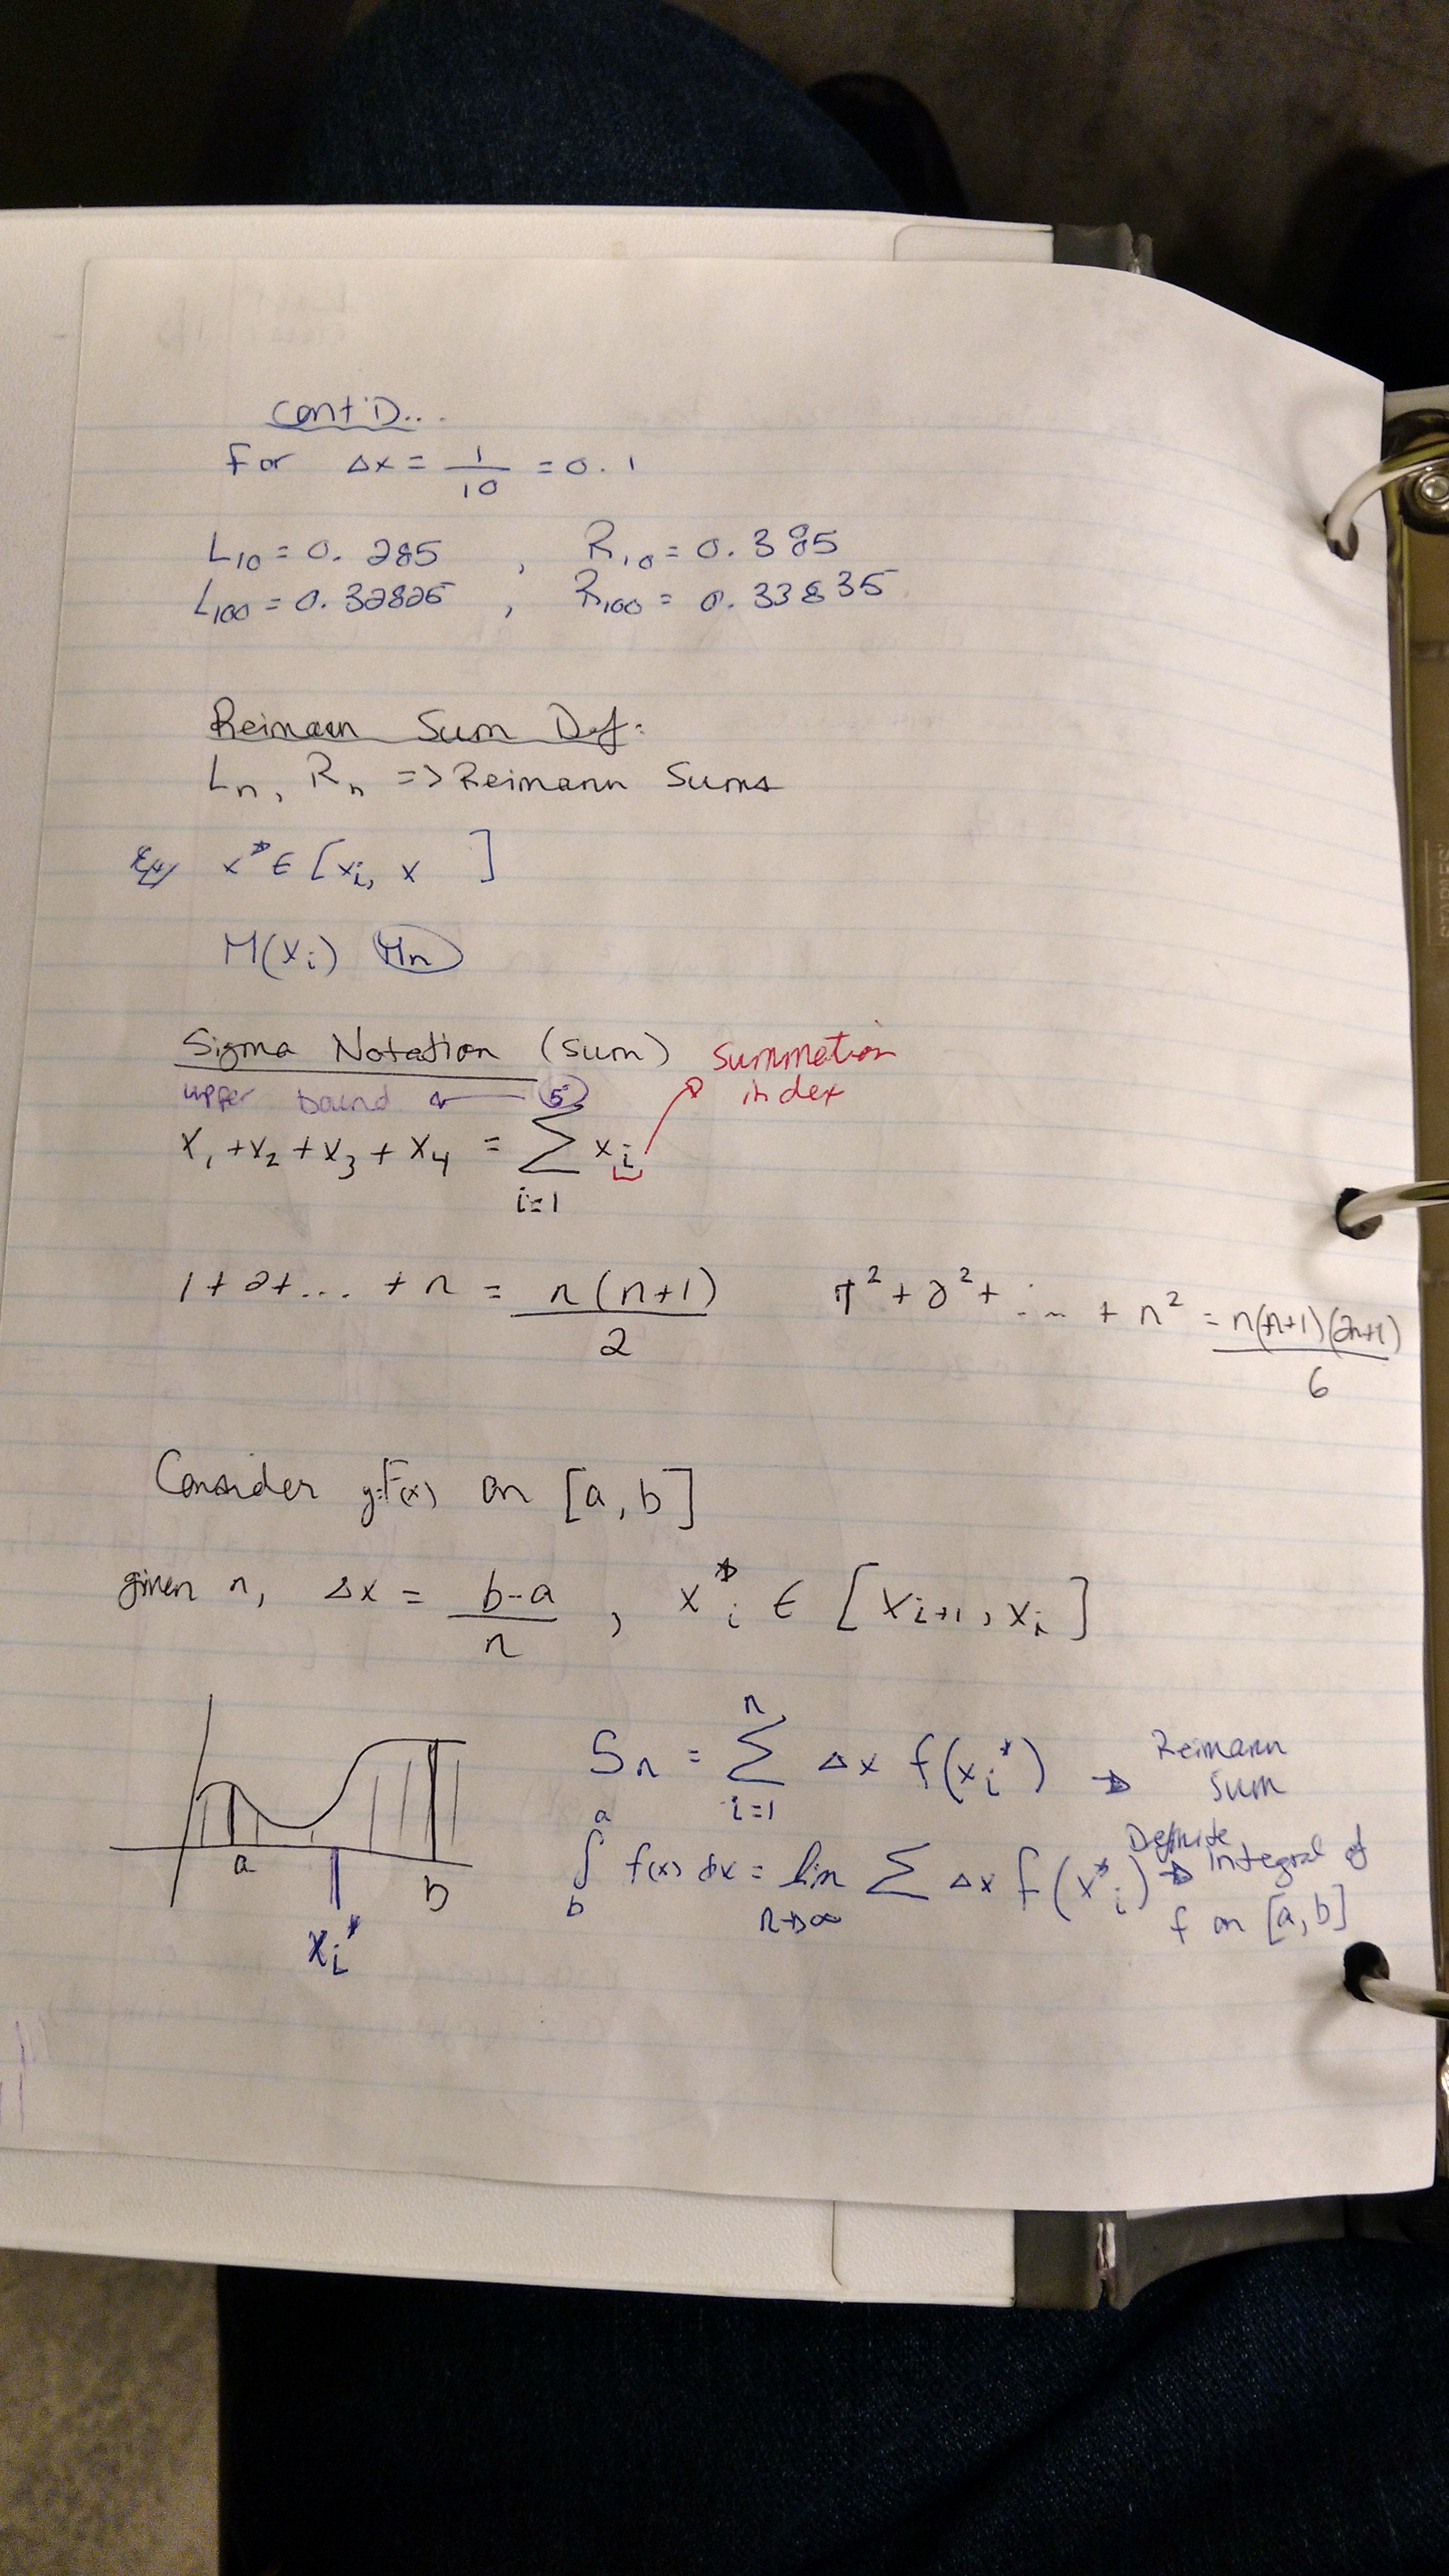 Cont'D...
For Δx = 1/10 = 0.1
L10 = 0.285 , R10 = 0.385
L100 = 0.32825 , R100 = 0.33835
Reimann Sum Def:
Ln, Rn => Reimann Sums
x* ∈ [xi, x ]
M(xi) Mn
Sigma Notation (sum) summation index
upper bound ← 5
x1 + x2 + x3 + x4 = Σ xi
i=1
1 + 2 + ... + n = n(n+1)/2 1² + 2² + ... + n² = n(n+1)(2n+1)/6
Consider y=F(x) on [a, b]
given n, Δx = b-a/n , x*i ∈ [xi+1, xi]
a b xi*
Sn = Σ i=1 n Δx f(xi*) → Reimann Sum
∫ b a f(x) dx = lim n→∞ Σ Δx f(x*i) → Definite integral of f on [a, b]